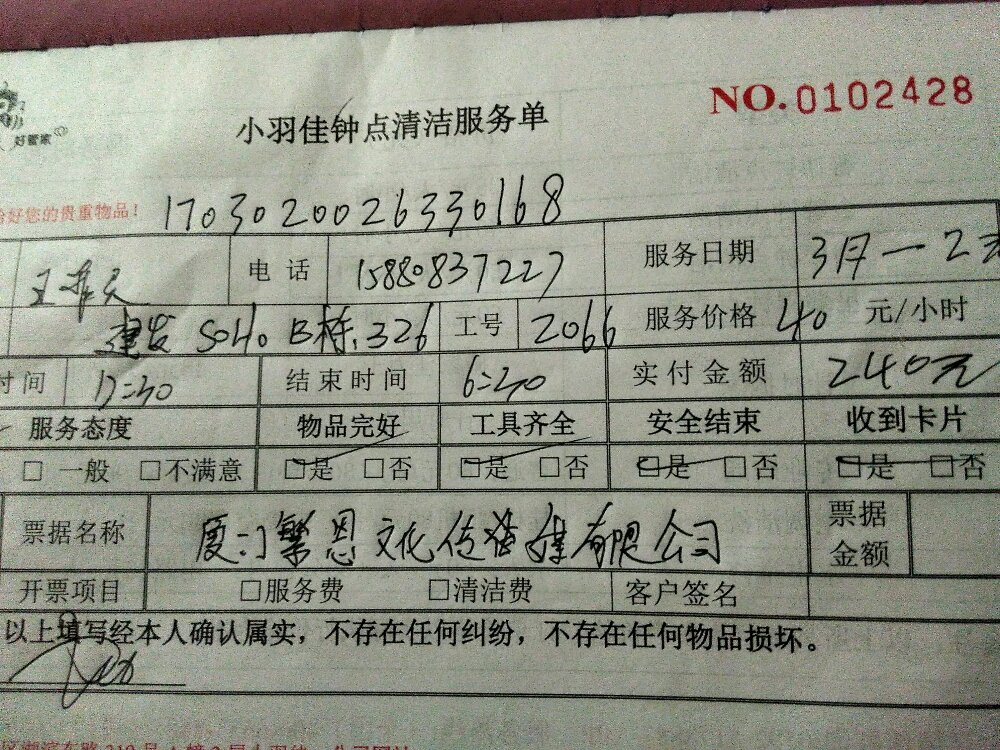 NO.0102428
好管家
小羽佳钟点清洁服务单
好您的贵重物品! 1703020026330168
电话 15880837227 服务日期 3月一2
建发 SOHO B栋.326 工号 2066 服务价格 40 元/小时
时间 17:30 结束时间 6:30 实付金额 240元
服务态度 物品完好 工具齐全 安全结束 收到卡片
□一般 □不满意 □是 □否 □是 □否 □是 □否 □是 □否
票据名称 厦门繁恩文化传媒有限公司 票据金额
开票项目 □服务费 □清洁费 客户签名
以上填写经本人确认属实，不存在任何纠纷，不存在任何物品损坏。